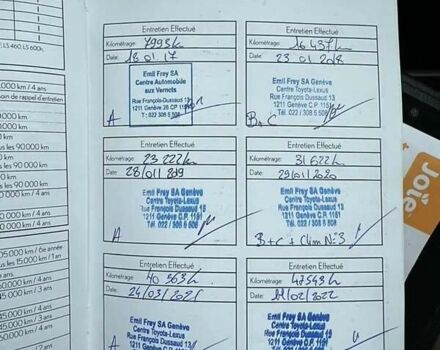 LS 460, LS 600h,
000 km / 4 ans
90 000 km
000 km / 4 ans
Entretien Effectué
Kilométrage: 7993 k
Date: 18.01.17
Emil Frey SA
Centre Automobile
aux Vernets
Rue François-Dussaud 13
1211 Genève 26 CP
T: 022 / 308 5 508
A
Entretien Effectué
Kilométrage: 16 437 k
Date: 23.01.2018
Emil Frey SA Genève
Centre Toyota-Lexus
Rue François Dussaud 13
1211 Genève C.P. 1151
Tél. 022 / 308 5 508
B+C
Entretien Effectué
Kilométrage: 23 222 k
Date: 28/01/2019
Emil Frey SA Genève
Centre Toyota-Lexus
Rue François Dussaud 13
1211 Genève C.P. 1151
Tél. 022 / 308 5 508
A
Entretien Effectué
Kilométrage: 31 622 k
Date: 29/01/2020
Emil Frey SA Genève
Centre Toyota-Lexus
Rue François Dussaud 13
1211 Genève C.P. 1151
B+C + Clim N°3
Entretien Effectué
Kilométrage: 40 363 k
Date: 24/03/2021
Emil Frey SA Genève
Centre Toyota-Lexus
Rue François Dussaud 13
Entretien Effectué
Kilométrage: 47543 k
Date: /02/2022
Emil Frey SA Genève
Centre Toyota-Lexus
Rue François Dussaud 13
1211 Genève C.P. 1151
Joie